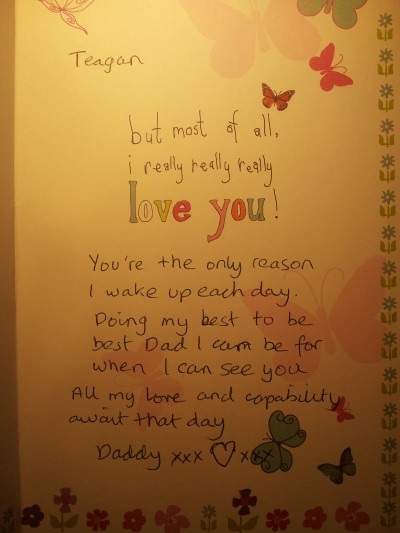 Teagan
but most of all,
i really really really
love you!
You're the only reason
I wake up each day.
Doing my best to be
best Dad I can be for
when I can see you
All my love and capability
await that day
Daddy xxx ♡ xxx